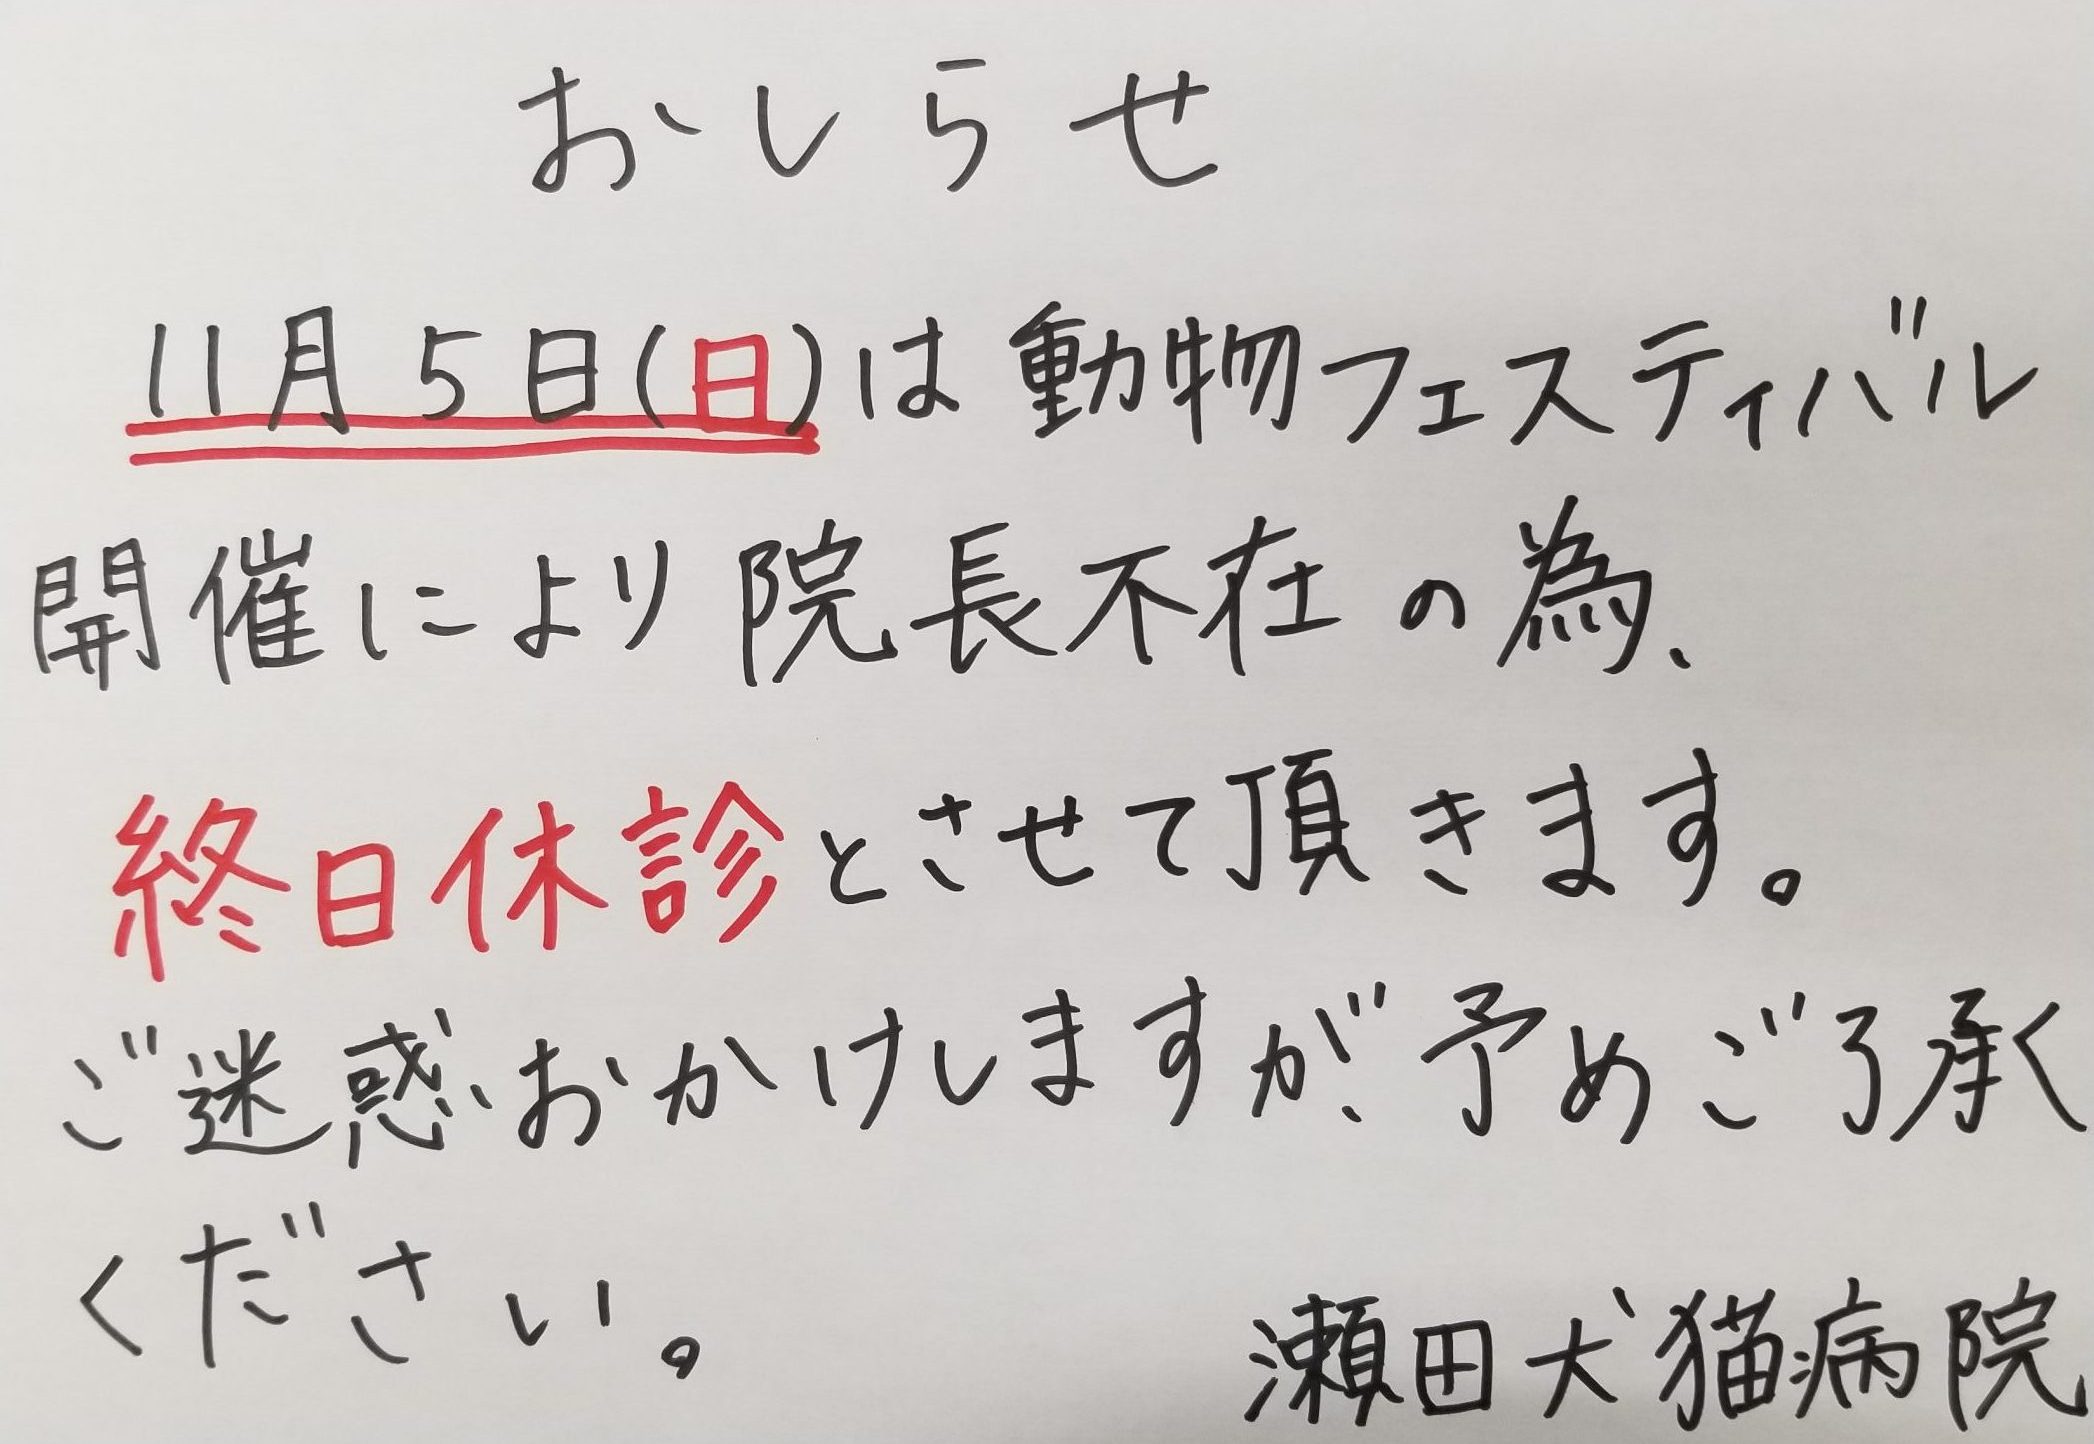 おしらせ
11月5日(日)は動物フェスティバル
開催により院長不在の為、
終日休診とさせて頂きます。
ご迷惑おかけしますが、予めご了承く
ください。
瀬田犬猫病院